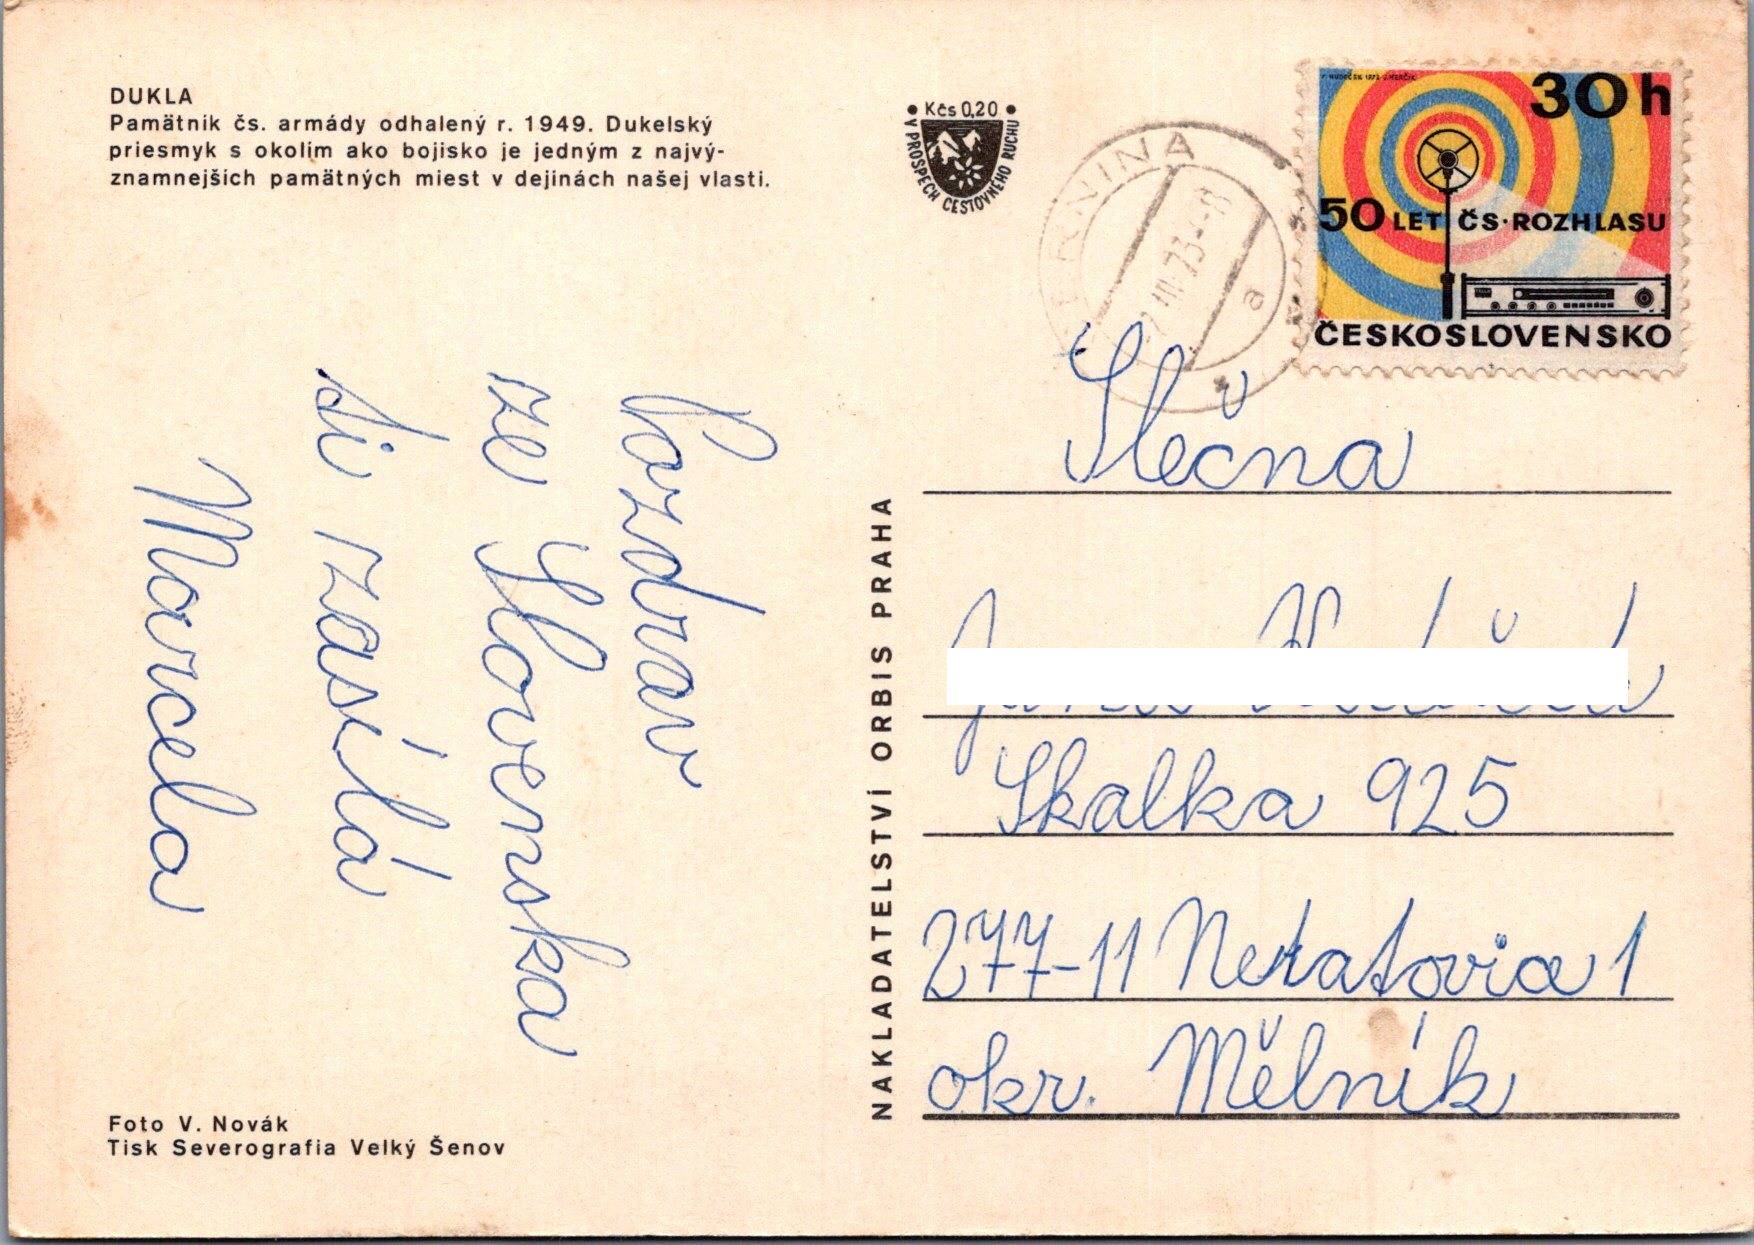 DUKLA
Pamätnik čs. armády odhalený r. 1949. Dukelský
priesmyk s okolím ako bojisko je jedným z najvý-
znamnejších pamätných miest v dejinách našej vlasti.
• Kčs 0,20 •
V PROSPECH CESTOVNÉHO RUCHU
30h
50 LET ČS·ROZHLASU
ČESKOSLOVENSKO
Pozdrav
ze Slovenska
ti zasílá
Marcela
NAKLADATELSTVÍ ORBIS PRAHA
Slečna
Skalka 925
277-11 Neratovice 1
okr. Mělník
Foto V. Novák
Tisk Severografia Velký Šenov